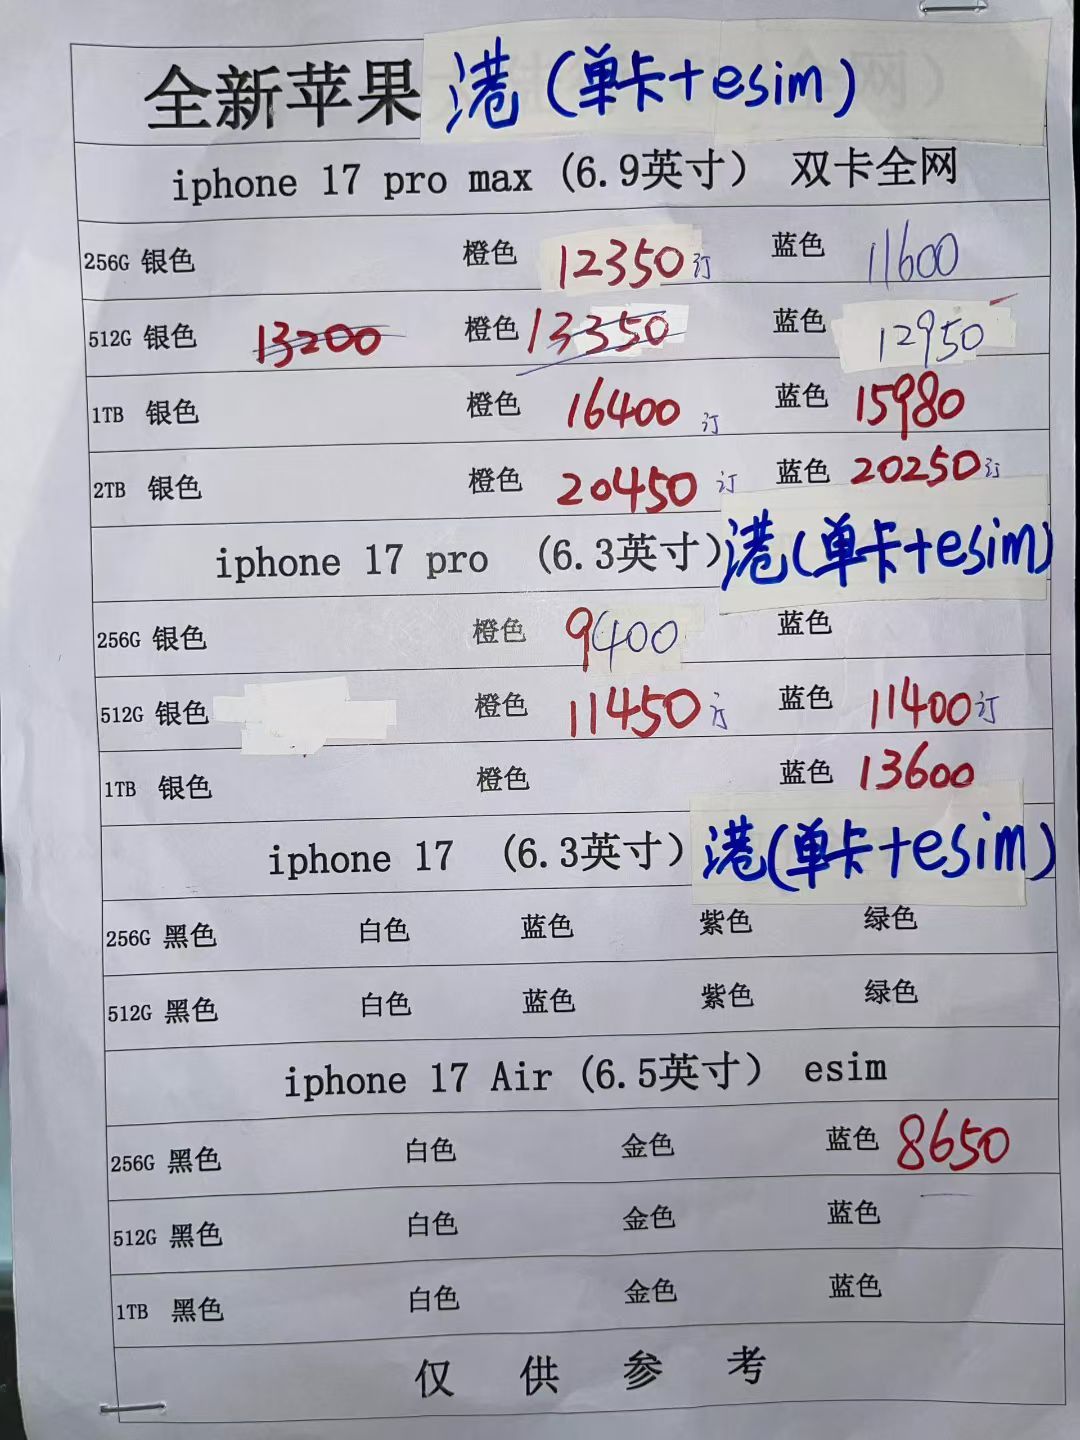 全新苹果 港(单卡+esim)
iphone 17 pro max (6.9英寸) 双卡全网
256G 银色 橙色 12350订 蓝色 11600
512G 银色 13200 橙色 13350 蓝色 12950
1TB 银色 橙色 16400 订 蓝色 15980
2TB 银色 橙色 20450 订 蓝色 20250订
iphone 17 pro (6.3英寸) 港(单卡+esim)
256G 银色 橙色 9400 蓝色
512G 银色 橙色 11450订 蓝色 11400订
1TB 银色 橙色 蓝色 13600
iphone 17 (6.3英寸) 港(单卡+esim)
256G 黑色 白色 蓝色 紫色 绿色
512G 黑色 白色 蓝色 紫色 绿色
iphone 17 Air (6.5英寸) esim
256G 黑色 白色 金色 蓝色 8650
512G 黑色 白色 金色 蓝色
1TB 黑色 白色 金色 蓝色
仅供参考